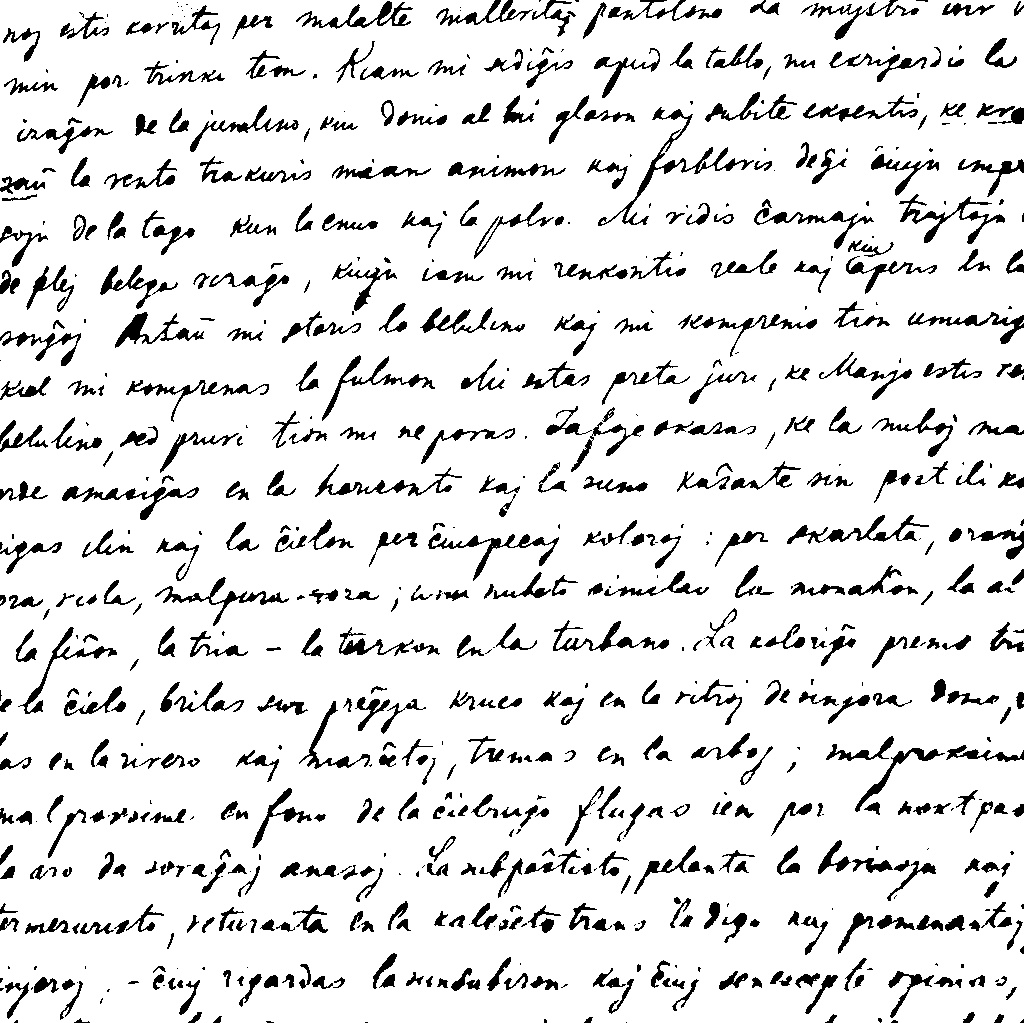 noj estis kovritaj per malalte malleritaj pantolono La majstro invi
min por trinki teon. Kiam mi sidiĝis apud la tablo, mi ekrigardis la
izaĝon de la junulino, kiu donis al mi glason kaj subite eksentis, ke kva
zaŭ la vento trakuris mian animon kaj forbloris deĝi ĉiujn impre
sojn de la tago kun la enuo kaj la polvo. Mi vidis ĉarmajn trajtojn
de plej belega vizaĝo, kiujn iam mi renkontis reale kaj kiu aperis en la
sonĝoj Antaŭ mi staris la belulino kaj mi komprenis tion unuarig
kiel mi komprenas la fulmon Mi estas preta ĵuri, ke Manjo estis ve
belulino, sed pruvi tion mi ne povas. Iafoje okazas, ke la nuboj ma
orde amasiĝas en la horizonto kaj la suno kaŝante sin post ili ko
rigas ilin kaj la ĉielon per ĉiuspecaj koloroj : per skarlata, oranĝ
ora, viola, malpura-roza ; unu nubeto similas la monaĥon, la al
la fiŝon, la tria – la turkon en la turbano. La koloriĝo premis
de la ĉielo, brilas sur preĝeja kruco kaj en la vitroj de sinjora domo,
las en la rivero kaj marĉetoj, tremas en la arboj ; malproksime
malproksime en fono de la ĉielruĝo flugas ien por la nokt pas
la aro da sovaĝaj anasoj. La subpaŝtisto, pelanta la bovinojn kaj
termezuristo, veturanta en la kaleŝeto trans la digo kaj promenantaj
injoroj, – ĉiuj rigardas la sunsubiron kaj ĉiuj senescepte opinias,